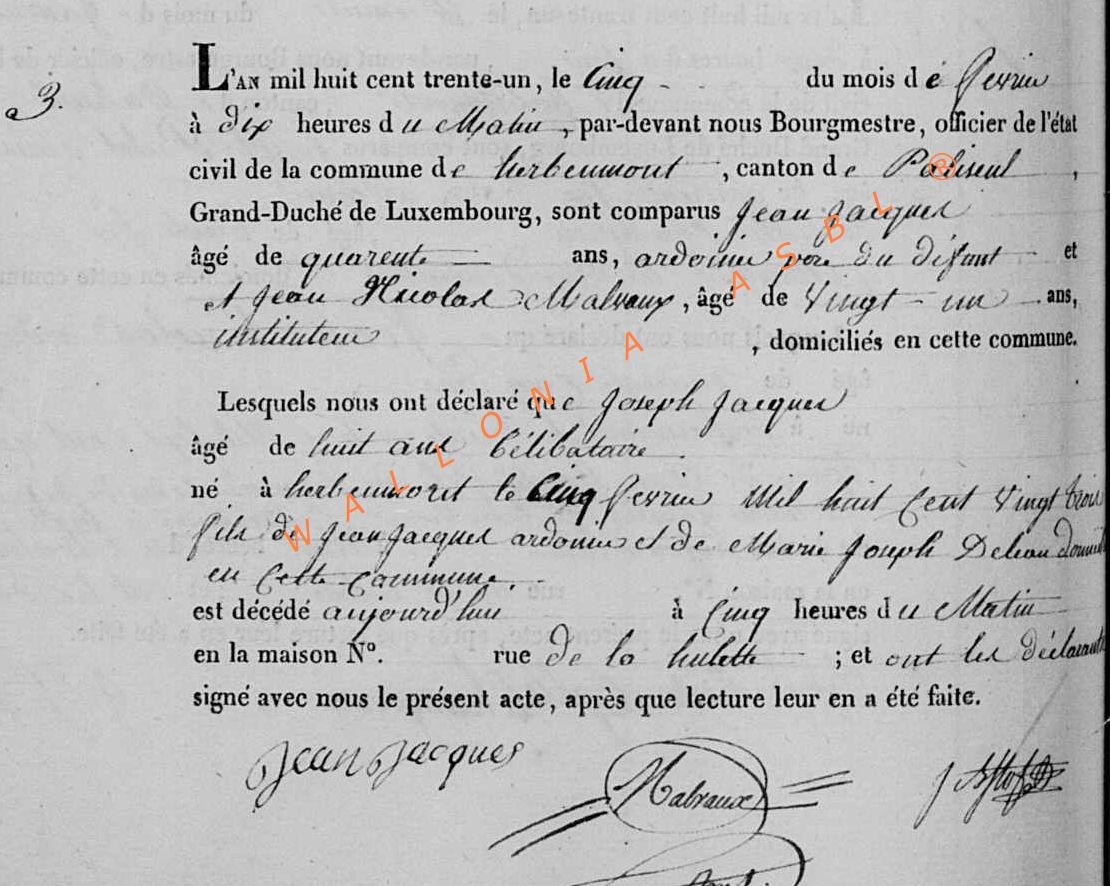 3.
L'AN mil huit cent trente-un, le Cinq du mois de fevrier
à Dix heures du Matin, par-devant nous Bourgmestre, officier de l'état
civil de la commune de herbeumont, canton de Paliseul,
Grand-Duché de Luxembourg, sont comparus Jean Jacques
âgé de quarente ans, ardoisier père du défunt et
et Jean Nicolas Malvaux, âgé de Vingt-un ans,
instituteur, domiciliés en cette commune.
Lesquels nous ont déclaré que Joseph Jacques
âgé de huit ans Célibataire.
né à herbeumont le Cinq fevrier Mil huit Cent Vingt trois
fils de Jean Jacques ardoisier et de Marie Joseph
en Cette Commune.
est décédé aujourd'hui à Cinq heures du Matin
en la maison N°. rue de la hulette; et ont les déclarants
signé avec nous le présent acte, après que lecture leur en a été faite.
Jean Jacques Malvaux
WALLONIA ASBL ®